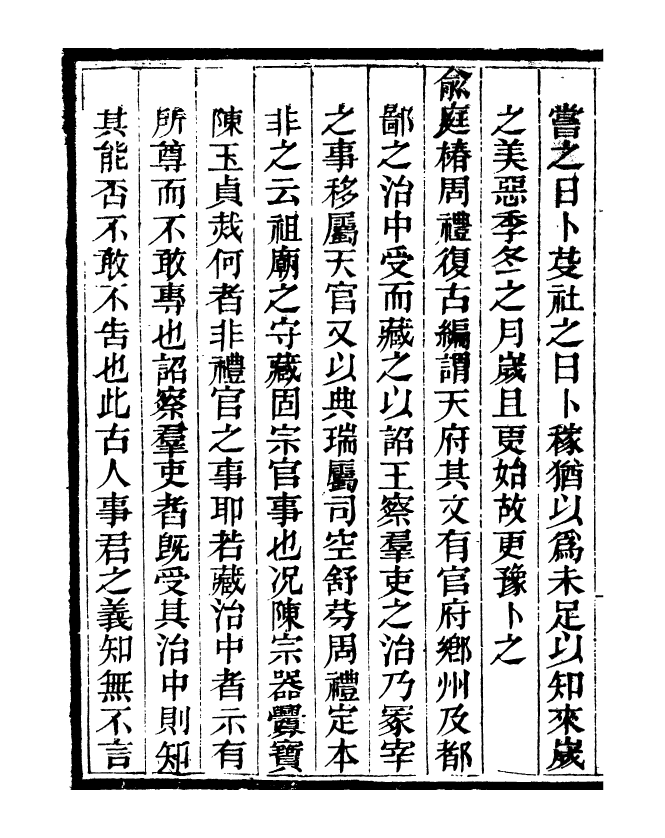 嘗之日卜芟社之日卜稼猶以爲未足以知來歲
之美惡季冬之月歲且更始故更豫卜之
俞庭椿周禮復古編謂天府其文有官府鄉州及都
鄙之治中受而藏之以詔王察羣吏之治乃冢宰
之事移屬天官又以典瑞屬司空舒芬周禮定本
非之云祖廟之守藏固宗官事也况陳宗器釁寶
陳玉貞烖何者非禮官之事耶若藏治中者示有
所尊而不敢專也詔察羣吏者既受其治中則知
其能否不敢不告也此古人事君之義知無不言